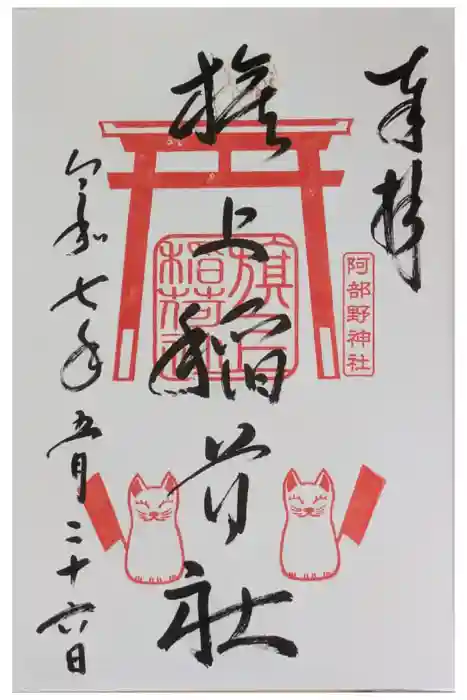 奉拝
阿部野神社
旗上稲荷社
旗上
稲荷社
令和七年五月二十六日